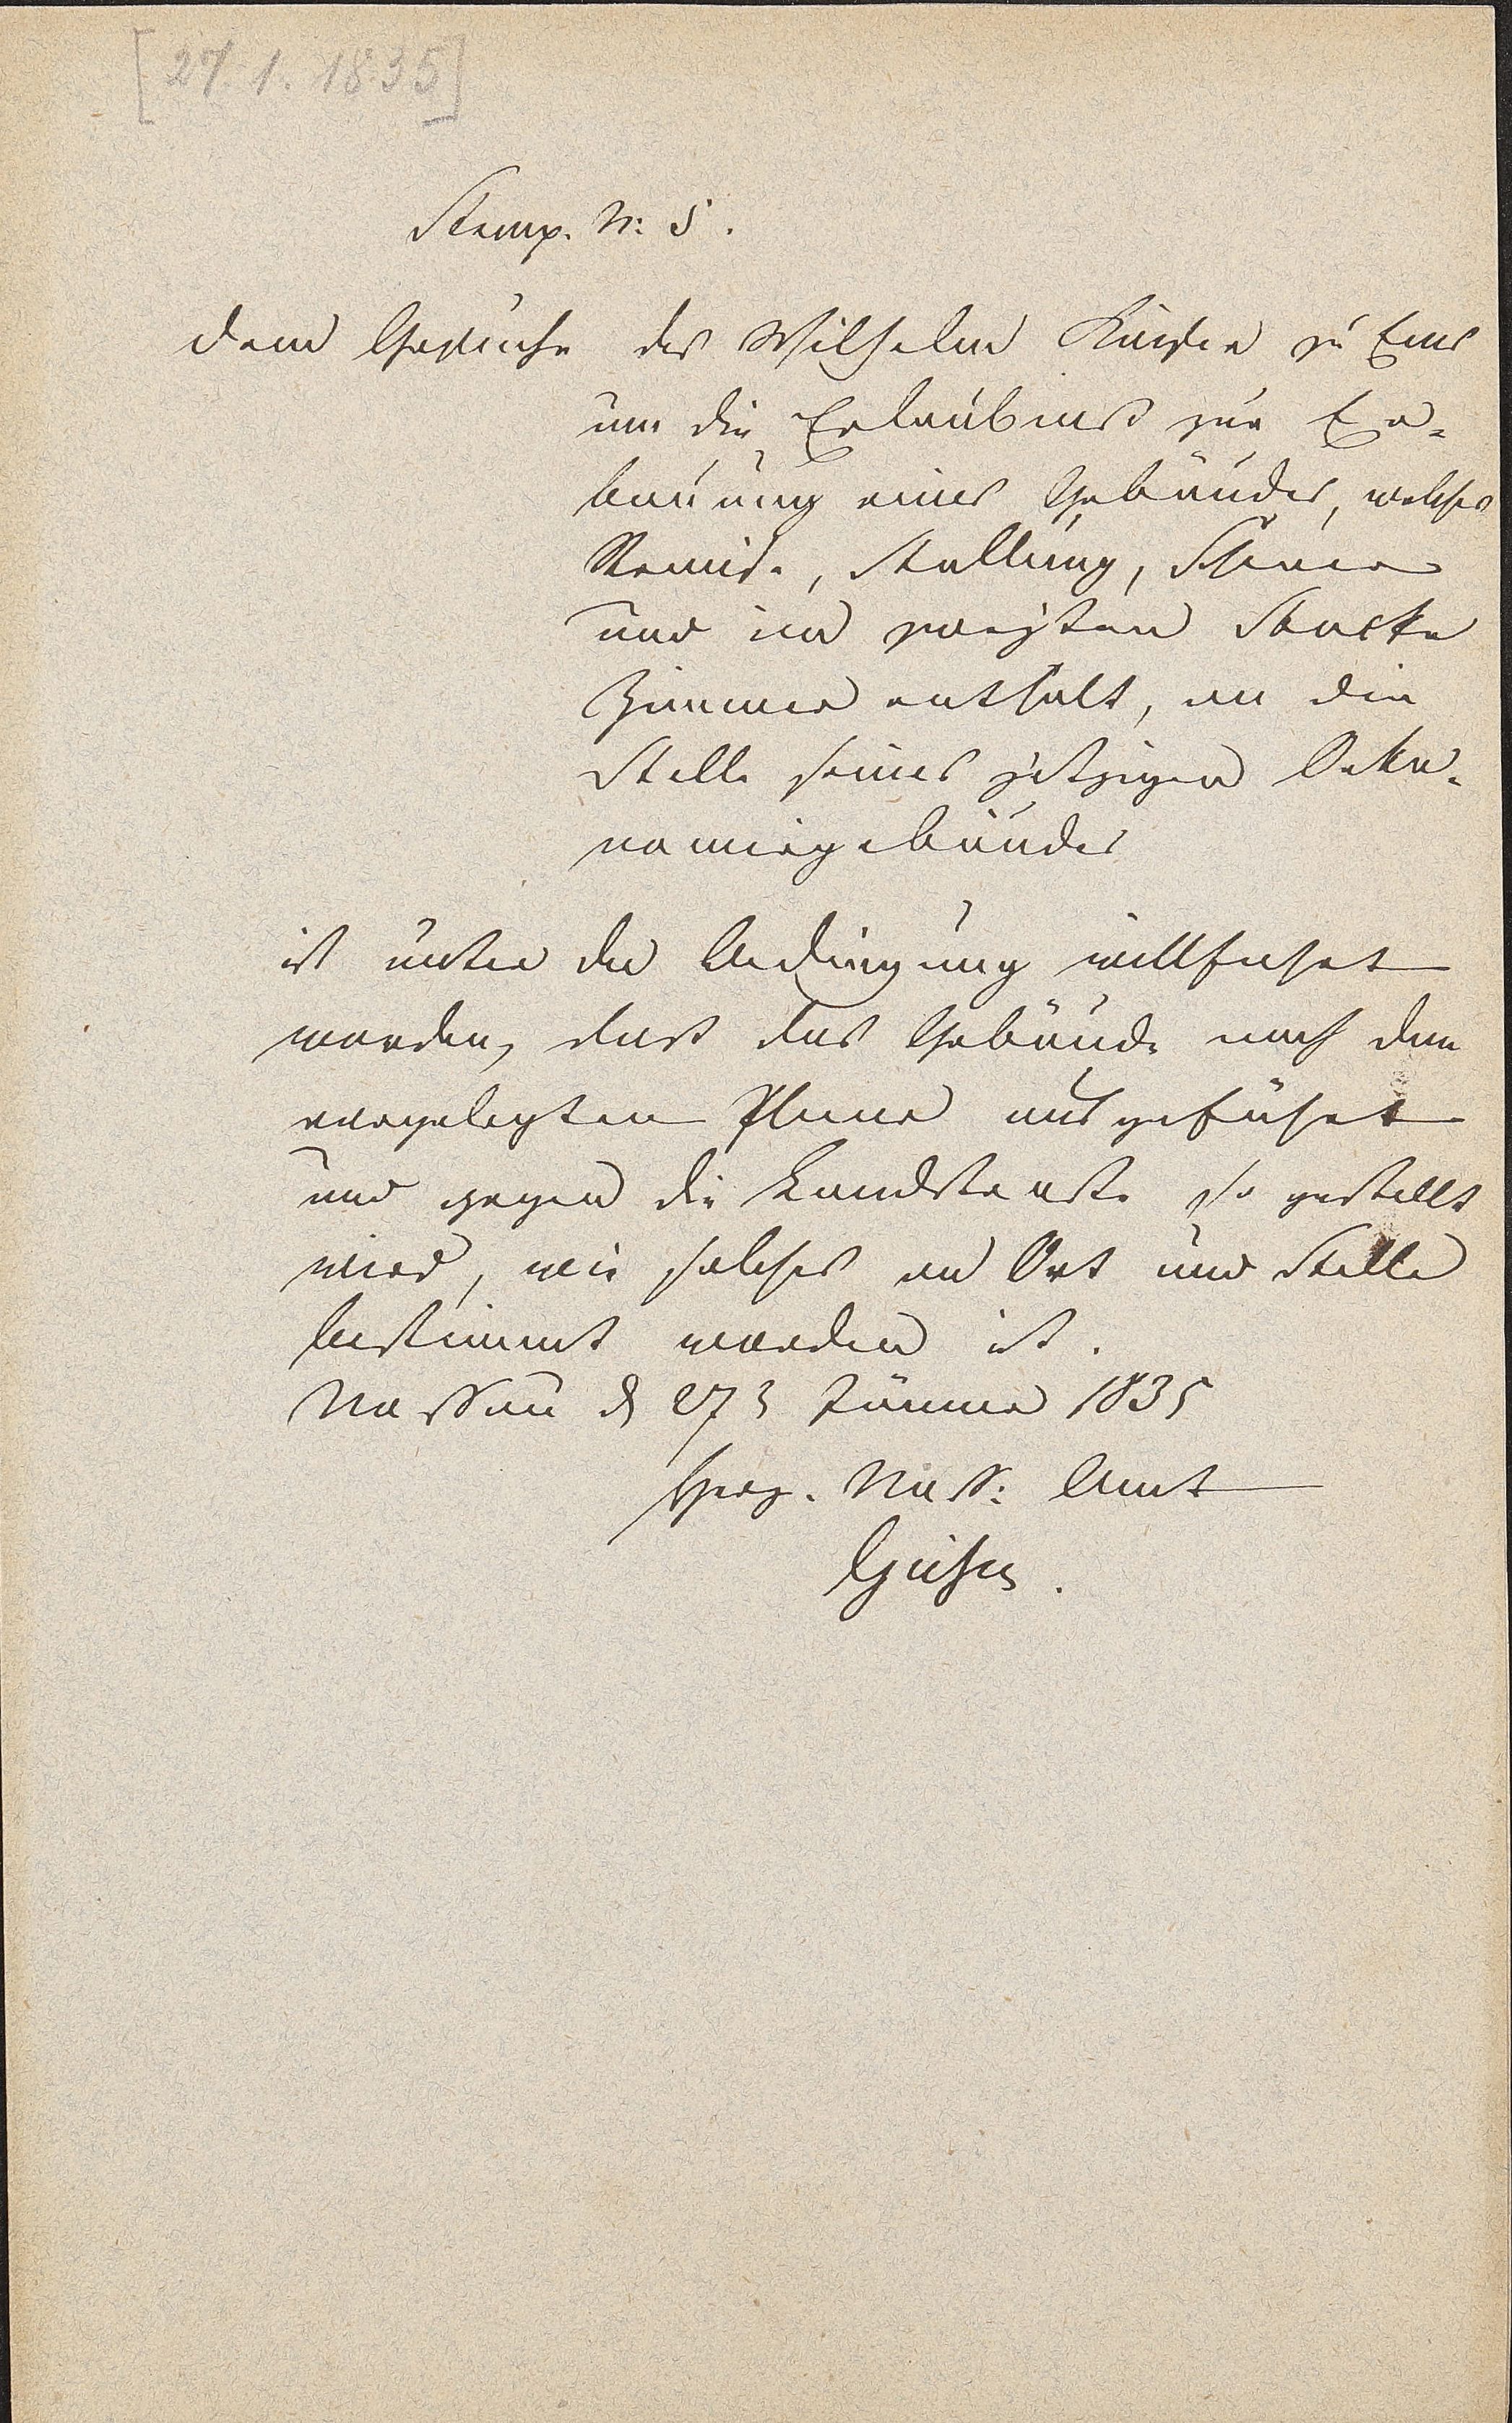 [27. 1. 1835]
Stemp. N: 5.
Dem Gesuche des Wilhelm Kaiser zu Ems
um die Erlaubniß zur Er-
bauung eines Gebäudes, welches
Remise, Stallung, Scheuer
und im zweyten Stocke
Zimmer enthält, an die
Stelle seines jetzigen Oeko-
nomiegebäudes
ist unter der Bedingung willfahrt
worden, daß das Gebäude nach dem
vorgelegten Plane ausgeführt
und gegen die Landstraße so gestellt
wird, wie solches an Ort und Stelle
bestimmt worden ist.
Nassau d 27 Jänner 1835
Herz. Nass: Amt